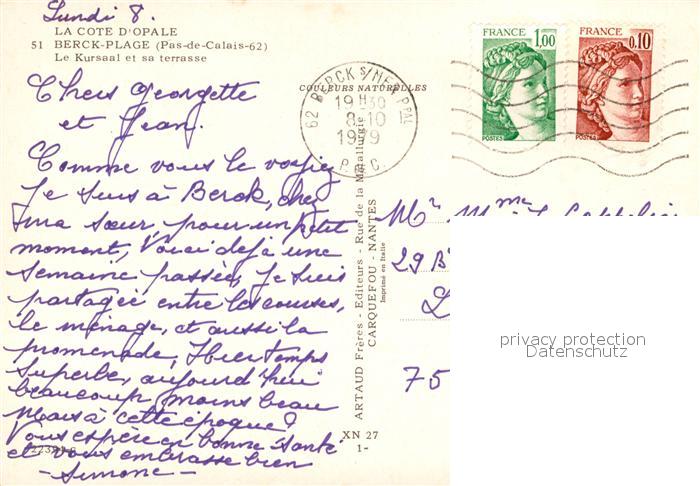 Lundi 8.
LA COTE D'OPALE
51 BERCK-PLAGE (Pas-de-Calais-62)
Le Kursaal et sa terrasse
Chers Georgette
et Jean.
Comme vous le voyez
Je suis à Berck, chez
ma sœur, pour un petit
moment, Voici déjà une
semaine passée, Je suis
partagée entre les courses,
le ménage, et aussi la
promenade, Hier temps
superbe, aujourd'hui
beaucoup moins beau
Mais à cette époque?
Vous espère en bonne santé
et vous embrasse bien
- Simone -
COULEURS NATURELLES
62 BERCK S/MER PPAL
19H30
8-10
1979
P. DE C.
FRANCE 1,00
POSTES
FRANCE 0,10
POSTES
ARTAUD Frères - Editeurs - Rue de la Métallurgie
CARQUEFOU - NANTES
Imprimé en Italie
XN 27
1-
Mr Mme
29 B
75
privacy protection
Datenschutz